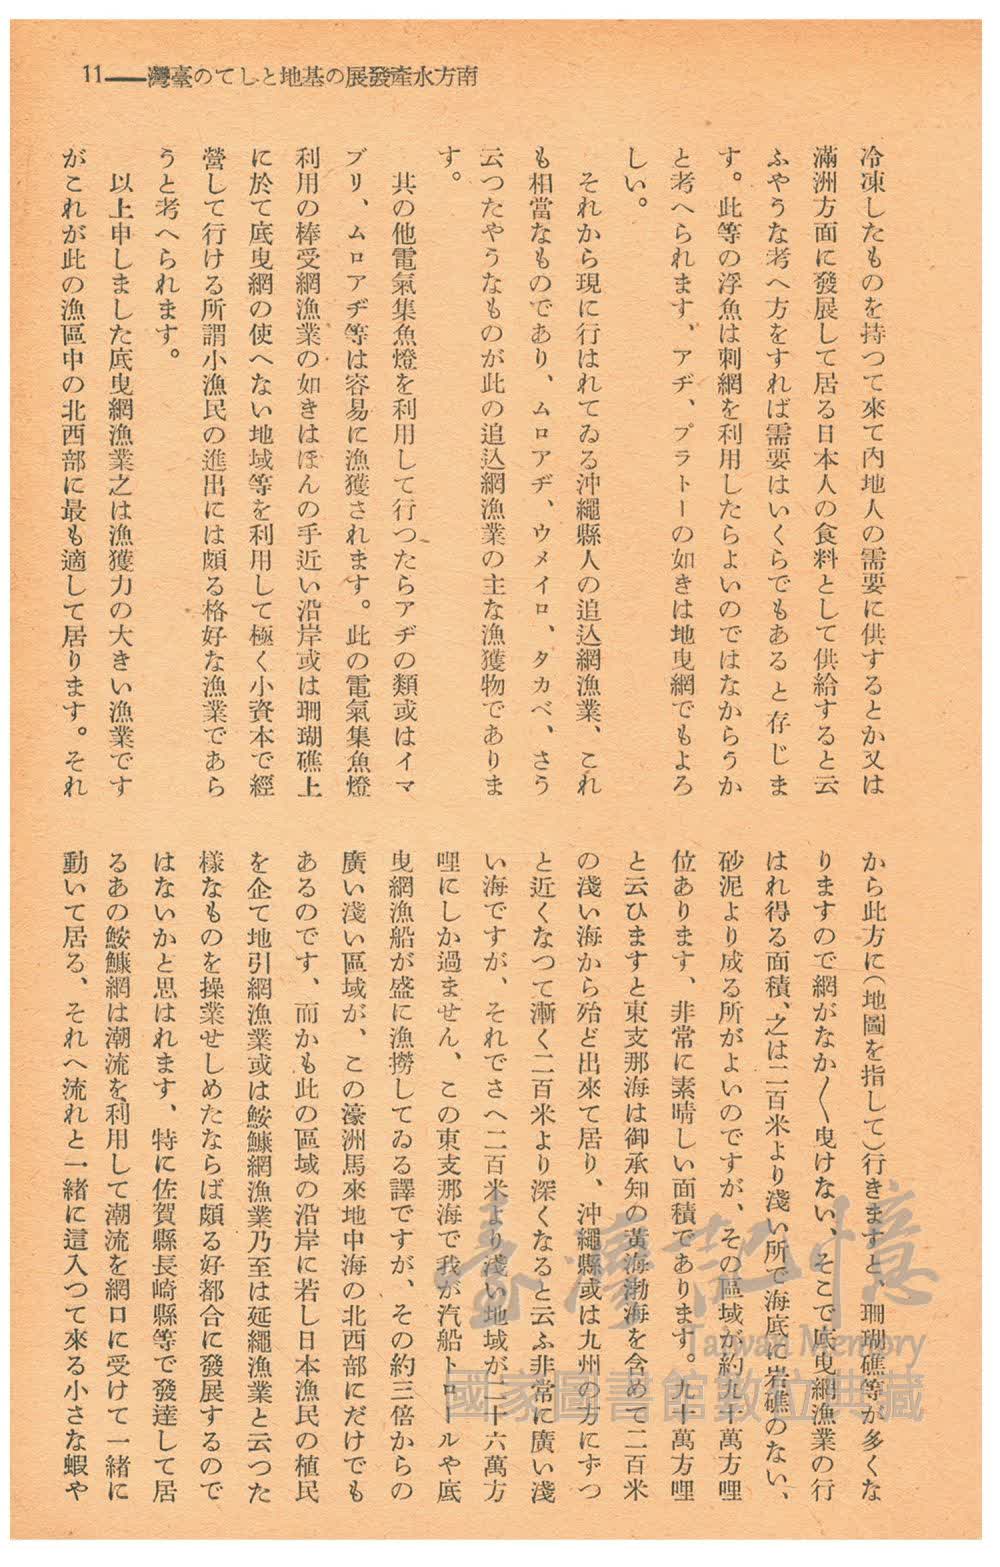 南方水產發展の基地としての臺灣――11
冷凍したものを持つて來て內地人の需要に供するとか又は
滿洲方面に發展して居る日本人の食料として供給すると云
ふやうな考へ方をすれば需要はいくらでもあると存じま
す。此等の浮魚は刺網を利用したらよいのではなからうか
と考へられます、アヂ、プラトーの如きは地曳網でもよろ
しい。
それから現に行はれてゐる沖繩縣人の追込網漁業、これ
も相當なものであり、ムロアヂ、ウメイロ、タカベ、さう
云つたやうなものが此の追込網漁業の主な漁獲物でありま
す。
其の他電氣集魚燈を利用して行つたらアヂの類或はイマ
ブリ、ムロアヂ等は容易に漁獲されます。此の電氣集魚燈
利用の棒受網漁業の如きはほんの手近い沿岸或は珊瑚礁上
に於て底曳網の使へない地域等を利用して極く小資本で經
營して行ける所謂小漁民の進出には頗る格好な漁業であら
うと考へられます。
以上申しました底曳網漁業之は漁獲力の大きい漁業です
がこれが此の漁區中の北西部に最も適して居ります。それ
から此方に(地圖を指して)行きますと、珊瑚礁等が多くな
りますので網がなか〳〵曳けない、そこで底曳網漁業の行
はれ得る面積、之は二百米より淺い所で海底に岩礁のない、
砂泥より成る所がよいのですが、その區域が約九十萬方哩
位あります、非常に素晴しい面積であります。九十萬方哩
と云ひますと東支那海は御承知の黃海渤海を含めて二百米
の淺い海から殆ど出來て居り、沖繩縣或は九州の方にずつ
と近くなつて漸く二百米より深くなると云ふ非常に廣い淺
い海ですが、それでさへ二百米より淺い地域が二十六萬方
哩にしか過ません、この東支那海で我が汽船トロールや底
曳網漁船が盛に漁撈してゐる譯ですが、その約三倍からの
廣い淺い區域が、この濠洲馬來地中海の北西部にだけでも
あるのです、而かも此の區域の沿岸に若し日本漁民の植民
を企て地引網漁業或は鮟鱇網漁業乃至は延繩漁業と云つた
樣なものを操業せしめたならば頗る好都合に發展するので
はないかと思はれます、特に佐賀縣長崎縣等で發達して居
るあの鮟鱇網は潮流を利用して潮流を網口に受けて一緒に
動いて居る、それへ流れと一緒に這入つて來る小さな蝦や
臺灣記憶
Taiwan Memory
國家圖書館數位典藏